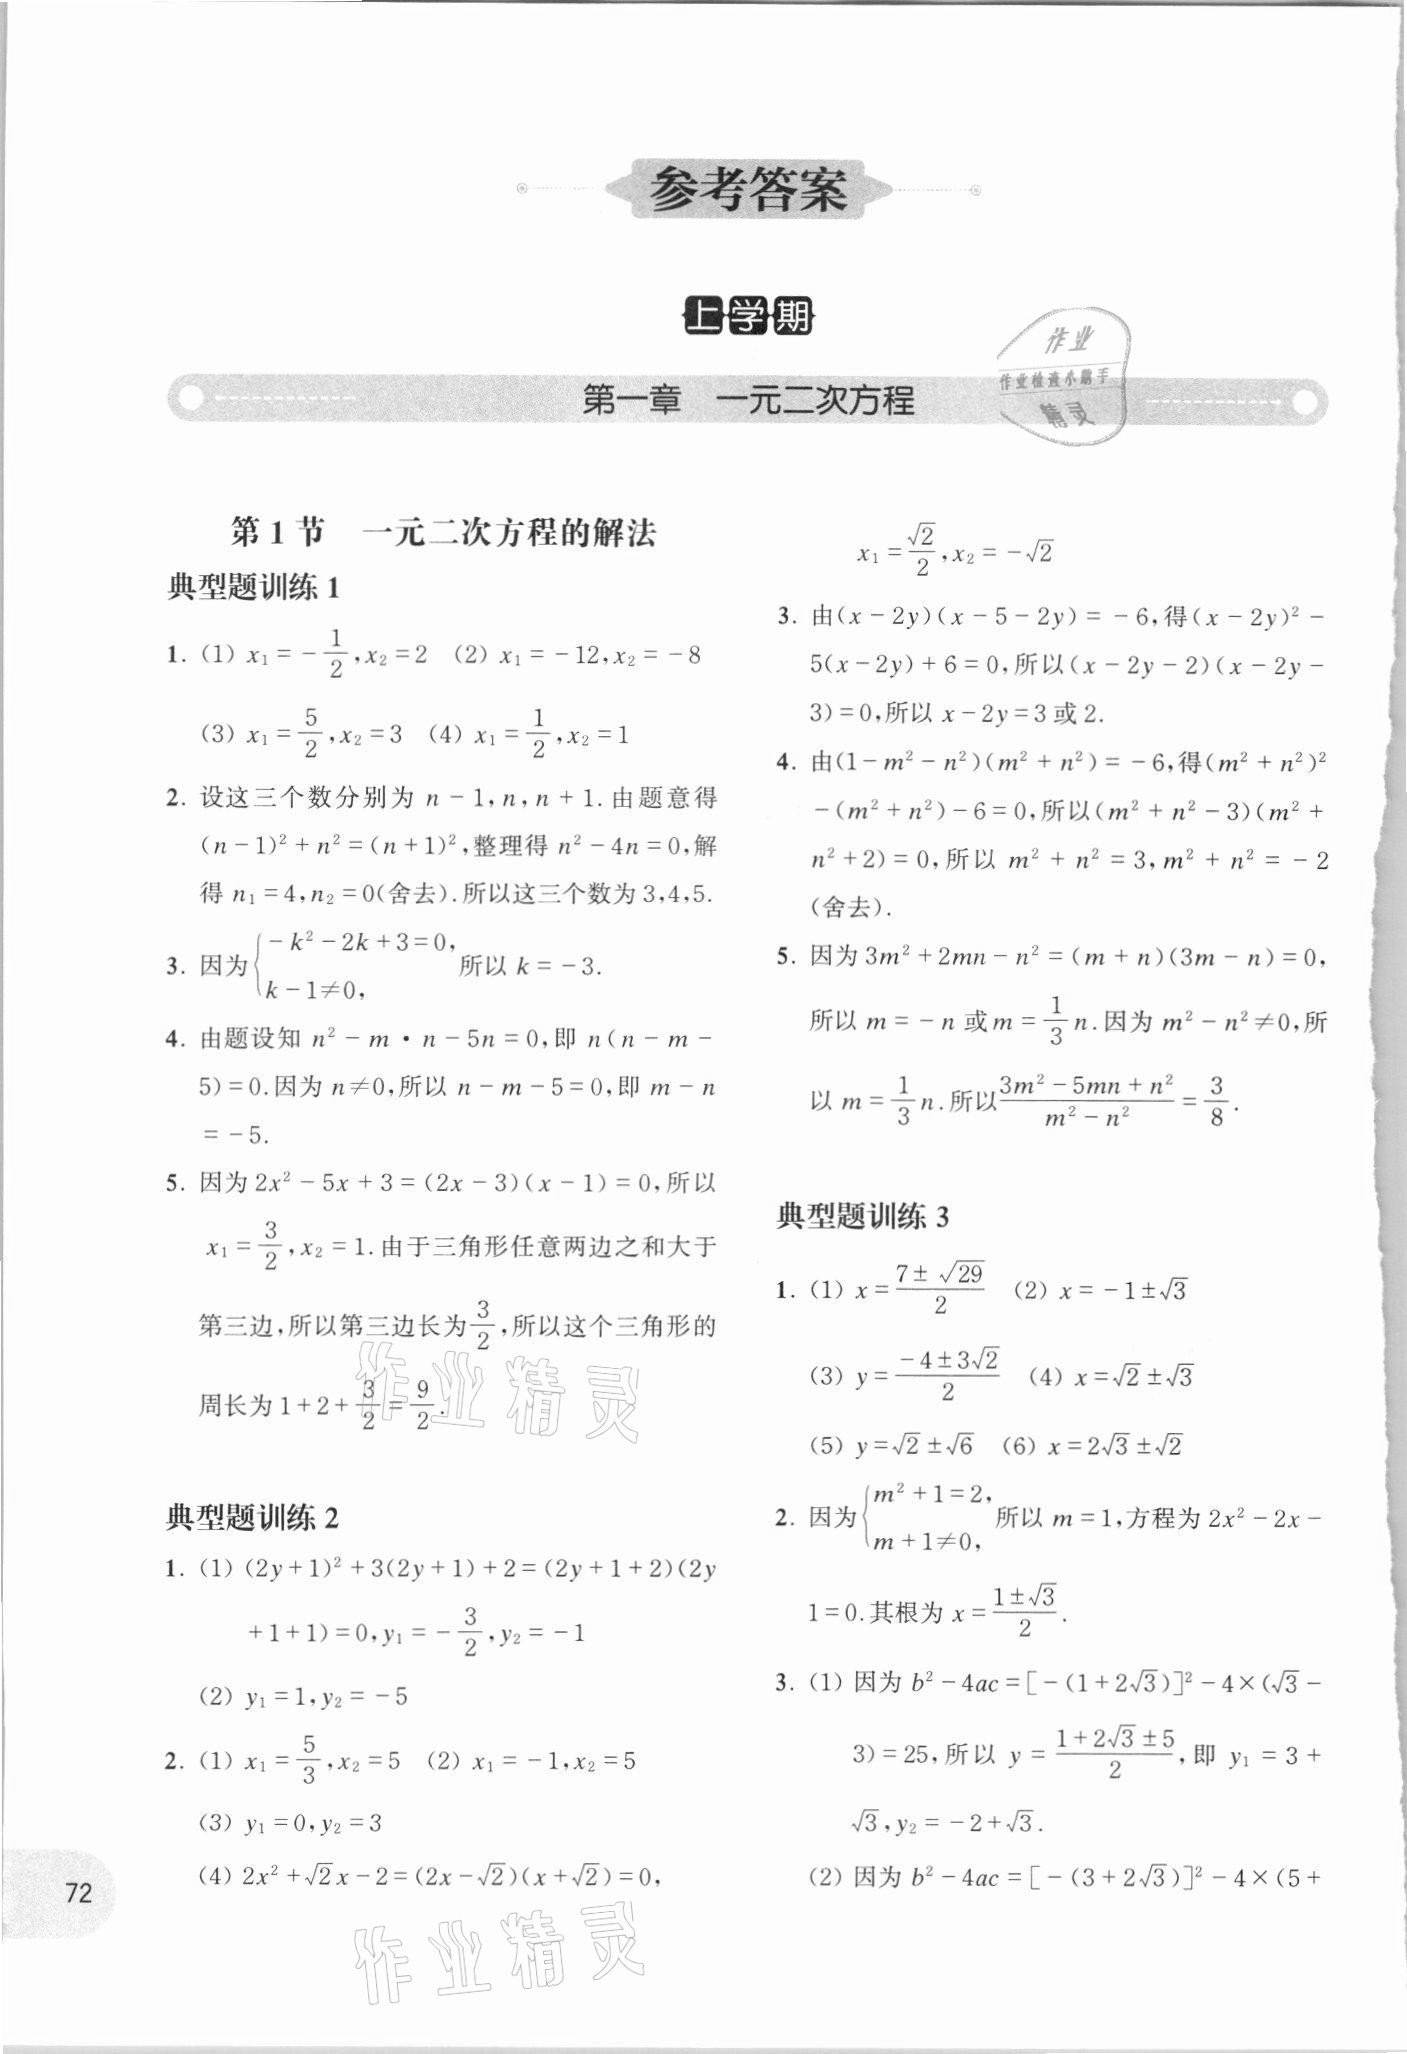 参考答案
上学期
第一章 一元二次方程
作业
作业检查小助手
精灵
第 1 节 一元二次方程的解法
典型题训练 1
1. (1) x₁ = -1/2, x₂ = 2 (2) x₁ = -12, x₂ = -8
(3) x₁ = 5/2, x₂ = 3 (4) x₁ = 1/2, x₂ = 1
2. 设这三个数分别为 n - 1, n, n + 1. 由题意得
(n - 1)² + n² = (n + 1)², 整理得 n² - 4n = 0, 解
得 n₁ = 4, n₂ = 0(舍去). 所以这三个数为 3,4,5.
3. 因为 { -k² - 2k + 3 = 0, k - 1 ≠ 0, 所以 k = -3.
4. 由题设知 n² - m · n - 5n = 0, 即 n(n - m -
5) = 0. 因为 n ≠ 0, 所以 n - m - 5 = 0, 即 m - n
= -5.
5. 因为 2x² - 5x + 3 = (2x - 3)(x - 1) = 0, 所以
x₁ = 3/2, x₂ = 1. 由于三角形任意两边之和大于
第三边, 所以第三边长为 3/2, 所以这个三角形的
周长为 1 + 2 + 3/2 = 9/2.
作业精灵
典型题训练 2
1. (1) (2y + 1)² + 3(2y + 1) + 2 = (2y + 1 + 2)(2y
+ 1 + 1) = 0, y₁ = -3/2, y₂ = -1
(2) y₁ = 1, y₂ = -5
2. (1) x₁ = 5/3, x₂ = 5 (2) x₁ = -1, x₂ = 5
(3) y₁ = 0, y₂ = 3
(4) 2x² + √2x - 2 = (2x - √2)(x + √2) = 0,
作业精灵
72
x₁ = √2/2, x₂ = -√2
3. 由(x - 2y)(x - 5 - 2y) = -6, 得(x - 2y)² -
5(x - 2y) + 6 = 0, 所以(x - 2y - 2)(x - 2y -
3) = 0, 所以 x - 2y = 3 或 2.
4. 由(1 - m² - n²)(m² + n²) = -6, 得(m² + n²)²
- (m² + n²) - 6 = 0, 所以(m² + n² - 3)(m² +
n² + 2) = 0, 所以 m² + n² = 3, m² + n² = -2
(舍去).
5. 因为 3m² + 2mn - n² = (m + n)(3m - n) = 0,
所以 m = -n 或 m = 1/3 n. 因为 m² - n² ≠ 0, 所
以 m = 1/3 n. 所以 (3m² - 5mn + n²)/(m² - n²) = 3/8.
典型题训练 3
1. (1) x = (7 ± √29)/2 (2) x = -1 ± √3
(3) y = (-4 ± 3√2)/2 (4) x = √2 ± √3
(5) y = √2 ± √6 (6) x = 2√3 ± √2
2. 因为 { m² + 1 = 2, m + 1 ≠ 0, 所以 m = 1, 方程为 2x² - 2x -
1 = 0. 其根为 x = (1 ± √3)/2.
3. (1) 因为 b² - 4ac = [-(1 + 2√3)]² - 4 × (√3 -
3) = 25, 所以 y = (1 + 2√3 ± 5)/2, 即 y₁ = 3 +
√3, y₂ = -2 + √3.
(2) 因为 b² - 4ac = [-(3 + 2√3)]² - 4 × (5 +